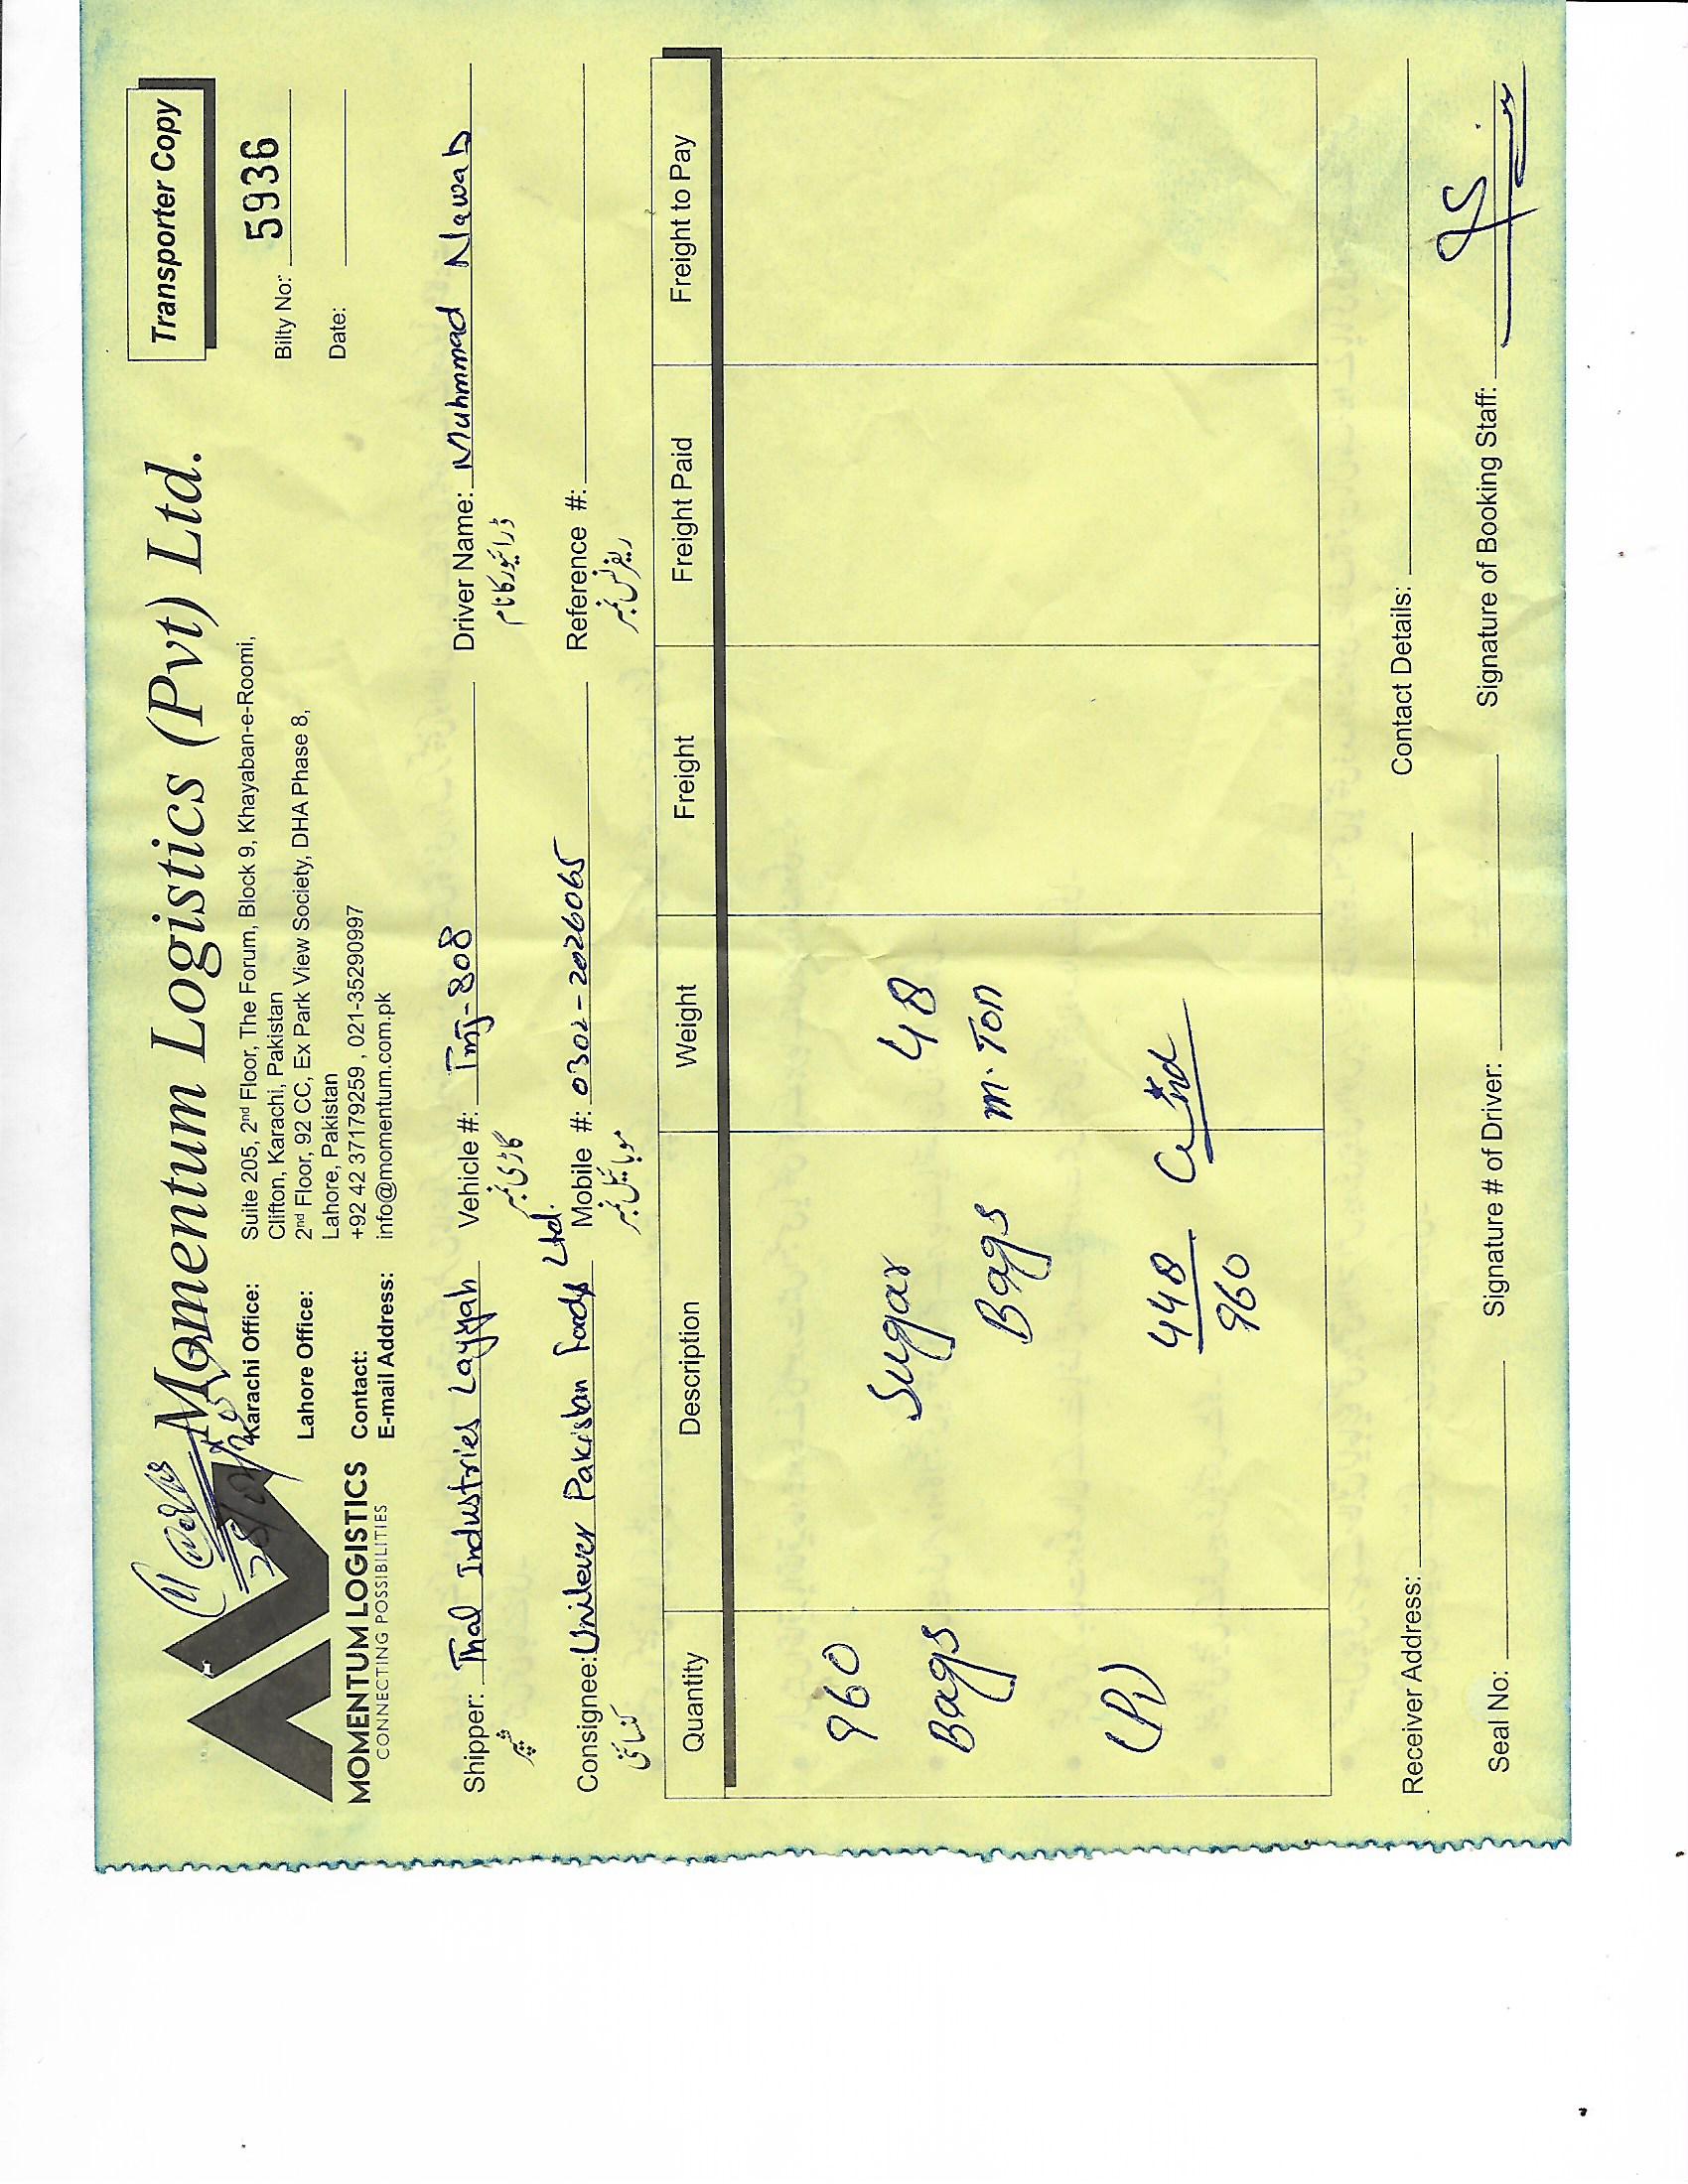 Momentum Logistics (Pvt) Ltd.
Transporter Copy
MOMENTUM LOGISTICS
CONNECTING POSSIBILITIES
Karachi Office: Suite 205, 2nd Floor, The Forum, Block 9, Khayaban-e-Roomi,
Clifton, Karachi, Pakistan
Lahore Office: 2nd Floor, 92 CC, Ex Park View Society, DHA Phase 8,
Lahore, Pakistan
Contact: +92 42 37179259 , 021-35290997
E-mail Address: info@momentum.com.pk
Bilty No: 5936
Date:
Shipper: Thal Industries Layyah Vehicle #: Tmj-808 Driver Name: Muhmmad Nawab
شیپر گاڑی نمبر ڈرائیور کا نام
Consignee: Unilever Pakistan Foods Ltd. Mobile #: 0302-2026065 Reference #:
کنسائنی موبائیل نمبر ریفرنس نمبر
Quantity Description Weight Freight Freight Paid Freight to Pay
960 Sugar 48
Bags Bags m. Ton
448
960
Receiver Address: Contact Details:
Seal No: Signature # of Driver: Signature of Booking Staff: